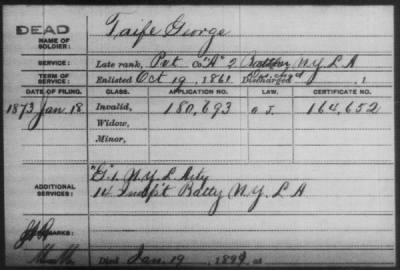 DEAD
NAME OF SOLDIER: Taife George
SERVICE: Late rank, Pvt Co "A" 2 Battery N.Y. L A
TERM OF SERVICE: Enlisted Oct 19, 1861 Discharged , 1
DATE OF FILING. CLASS. APPLICATION NO. LAW. CERTIFICATE NO.
1873 Jan. 18 Invalid, 180,693 164,652
Widow,
Minor,
"G" 1. N.Y. L Arty
ADDITIONAL SERVICES: 14 Indp't Batty N.Y. L A
REMARKS:
Died Jan. 19, 1899, at